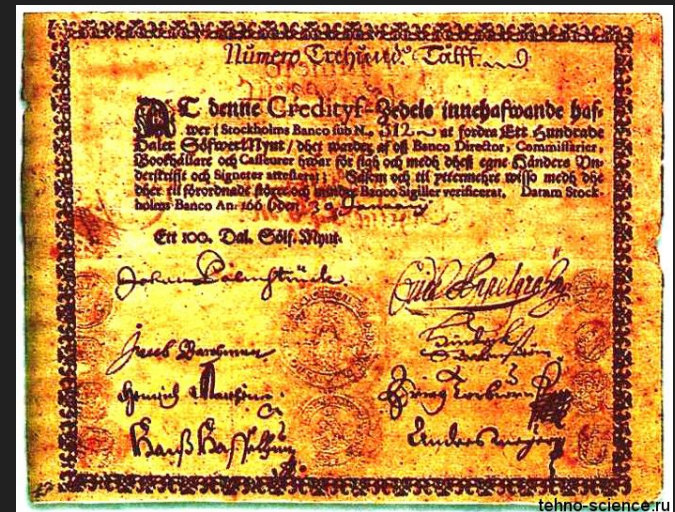 Numero Trehund. Tålff.
AT denne Credityf-Zedels innehafwande haf-
wer i Stockholms Banco sub N. 312 at fordra Ett Hundrade
Daler Sölfwer Mynt / dhet warder af oß Banco Director, Commissarier,
Bookhållare och Casseurer hwar för sigh och medh dheß egne Händers Un-
derskrifft och Signeter attesterat; Såsom och til yttermehre wisso medh dhe
dher til förordnade större och mindre Banco Sigiller verificerat. Datum Stock-
holms Banco An: 166 6 den 30 January
Ett 100. Dal. Sölf. Mynt.
Johan Palmstruch.
Jacob
Hinrich
Hanß
Anders
tehno-science.ru